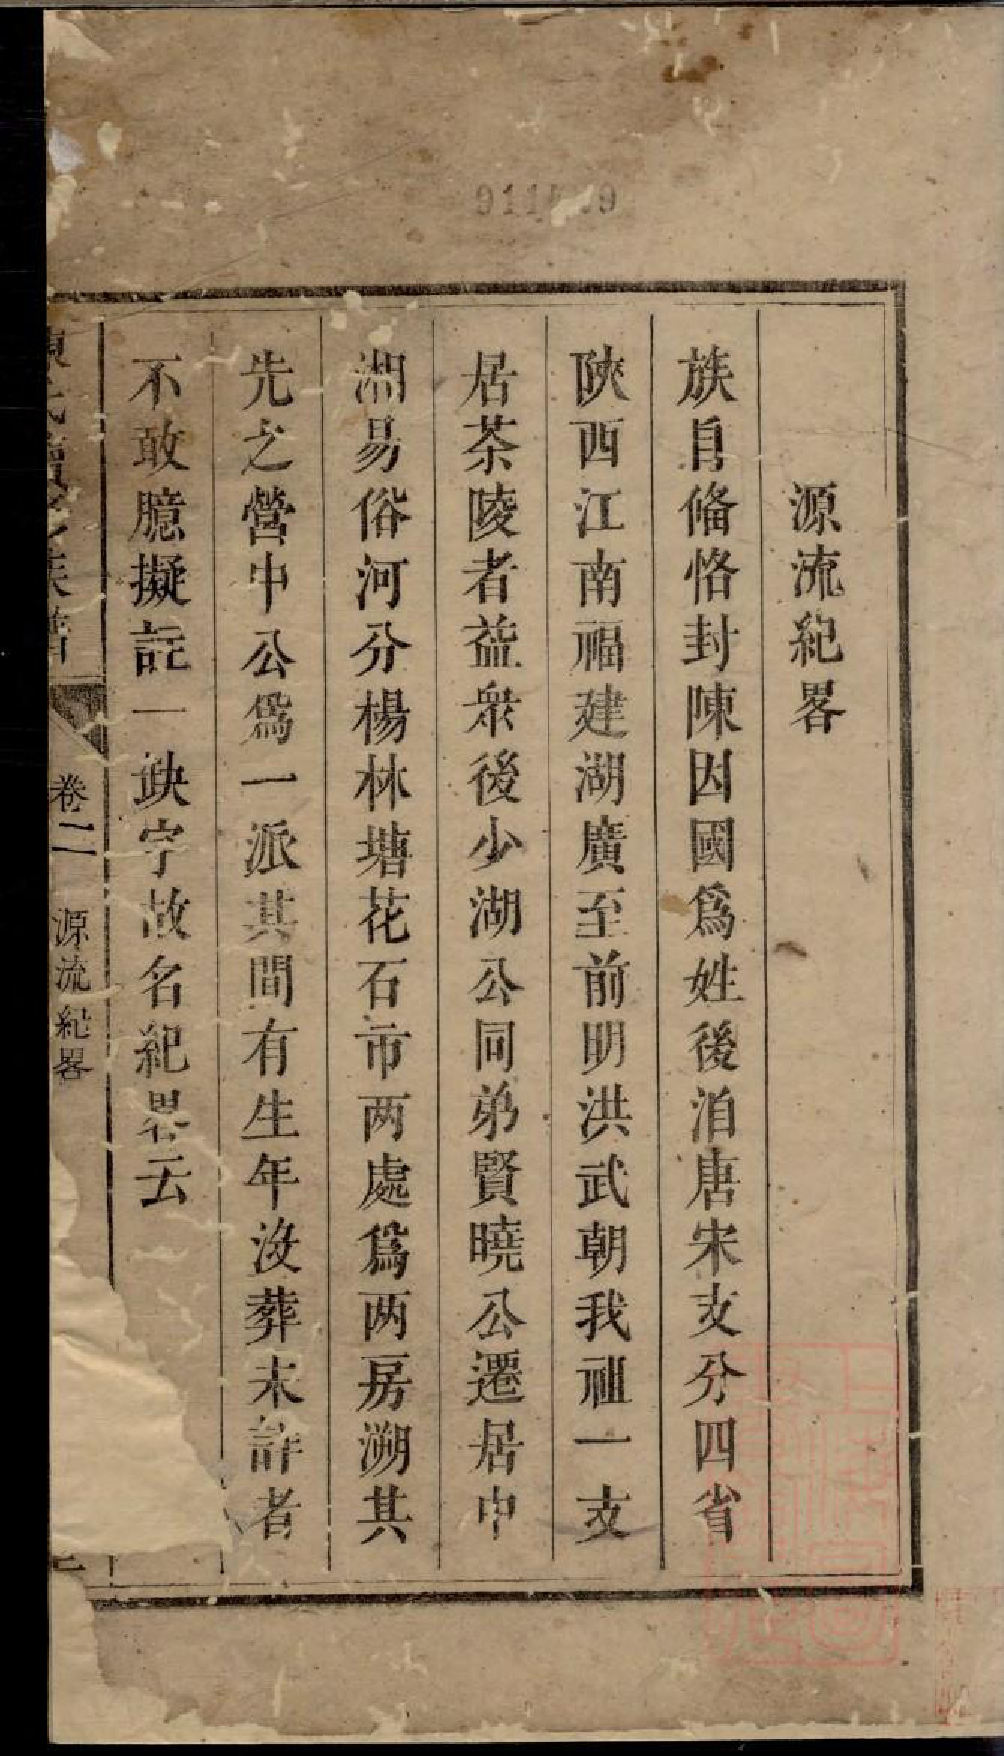 源流紀畧
族自俻恪封陳因國爲姓後洎唐宋支分四省
陜西江南福建湖廣至前明洪武朝我祖一支
居茶陵者益衆後少湖公同弟賢曉公遷居中
湘易俗河分楊林塘花石市两處爲两房溯其
先之營中公爲一派其間有生年沒葬未詳者
不敢臆擬註一缺字故名紀畧云
氏續修族譜
卷二
源流紀畧